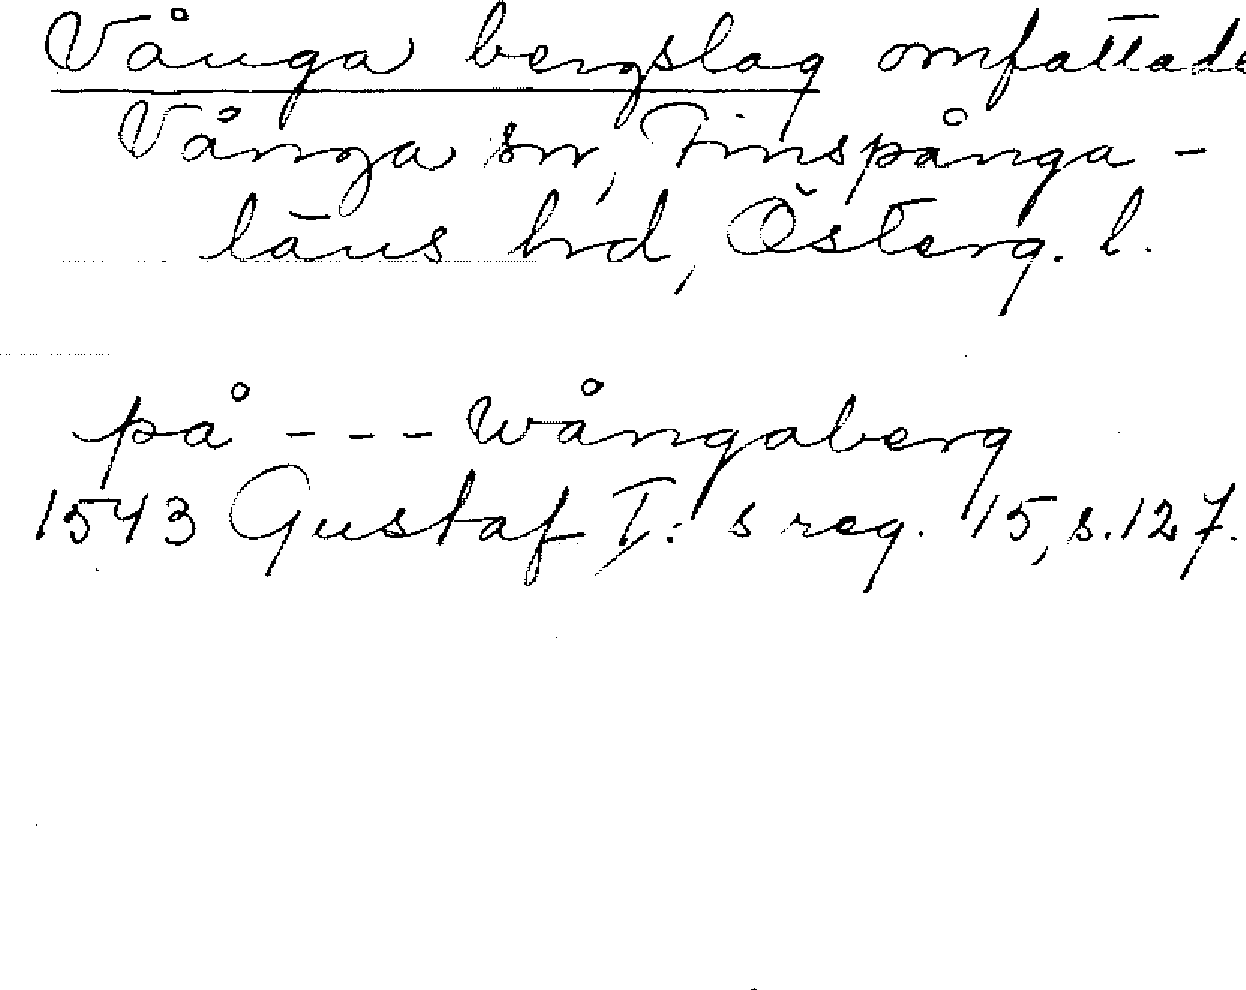 Vånga bergslag omfattade
Vånga sn, Finspånga -
läns hrd, Österg. l.
på - - - Wångaberg
1543 Gustaf I:s reg. 15, s. 127.